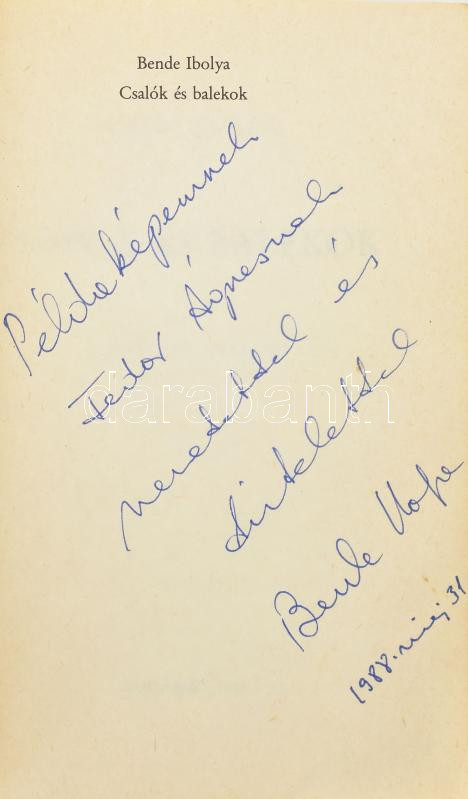 Bende Ibolya
Csalók és balekok
Példaképemnek
Fedor Ágnesnek
szeretettel és
tisztelettel
Bende Ibolya
1988. máj 31
darabanth